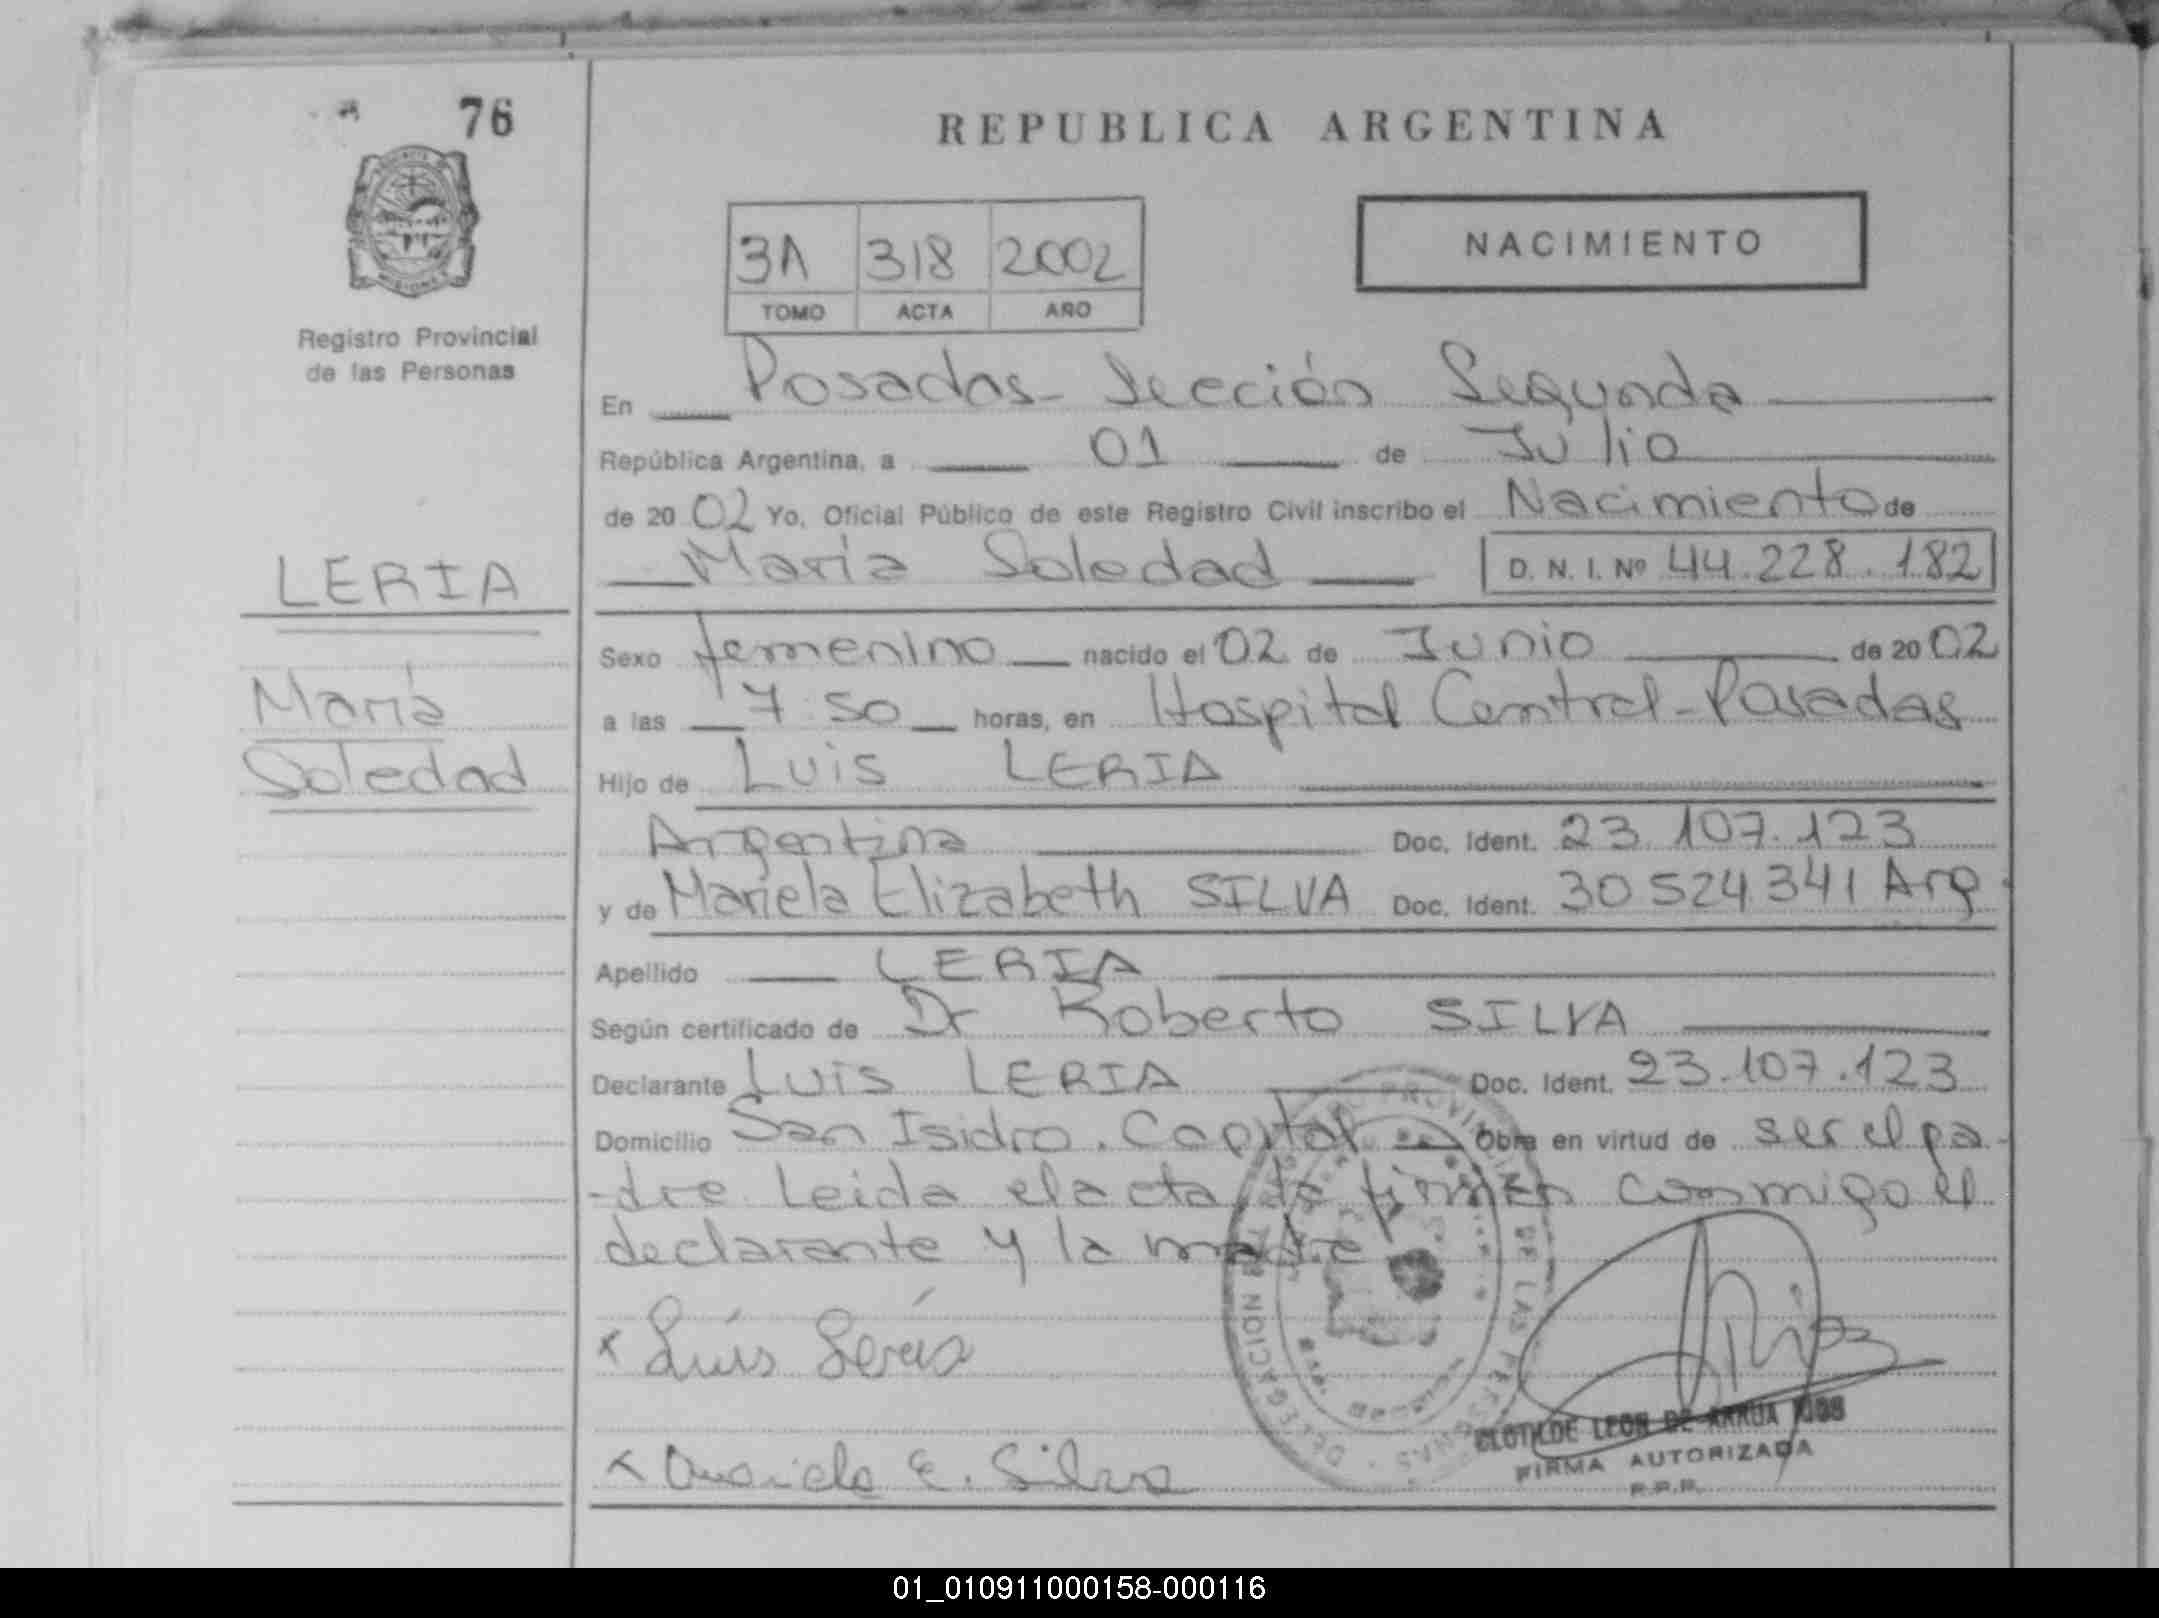 76
REPUBLICA ARGENTINA
3A 318 2002
TOMO ACTA AÑO
NACIMIENTO
Registro Provincial
de las Personas
En Posadas - Sección Segunda
República Argentina, a 01 de Julio
de 2002 Yo, Oficial Público de este Registro Civil inscribo el Nacimiento de
María Soledad D. N. I. Nº 44.228.182
LERIA
María
Soledad
Sexo femenino nacido el 02 de Junio de 2002
a las 7:50 horas, en Hospital Central - Posadas
Hijo de Luis LERIA
Argentina Doc. Ident. 23.107.123
y de Mariela Elizabeth SILVA Doc. Ident. 30524341 Arg.
Apellido LERIA
Según certificado de Dr Roberto SILVA
Declarante Luis LERIA Doc. Ident. 23.107.123
Domicilio San Isidro. Capital Obra en virtud de ser el pa-
-dre Leida el acta la firman conmigo el
declarante y la madre
x Luis Leria
x Mariela E. Silva
CLOTILDE LEON DE ARRUA
FIRMA AUTORIZADA
R.P.P.
DELEGACION
DE LAS PERSONAS
01_010911000158-000116